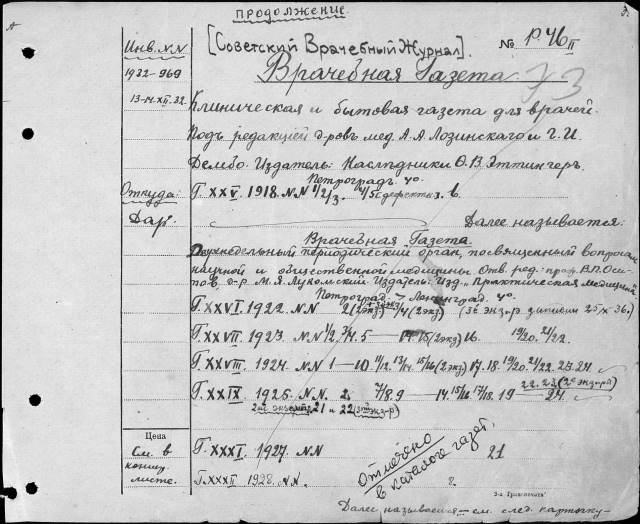 ПРОДОЛЖЕНИЕ
Инв. NN
[Советский Врачебный Журнал].
№ Р 46 II
1932-969
Врачебная Газета
13-14.XII.32.
Клиническая и бытовая газета для врачей.
Подъ редакціей д-ровъ мед. А.А Лозинскаго и Г. И.
Дембо. Издатель: Наслѣдники Ѳ.В. Эттингеръ.
Петроградъ. 4°.
Откуда:
Г. XXV. 1918. NN 1/2/3. 4/5 дефекты з. в.
Дар.
Далее называется:
Врачебная Газета.
Двухнедельный периодический орган, посвященный вопросам
научной и общественной медицины. Отв. ред: проф. В.П. Оси-
пов, д-р М.Я. Лукомский Издатель: Изд. Практическая медицина
Петроград → Ленинград. 4°.
Г. XXVI. 1922. NN 2 (2экз) 4 (2экз) (3й экз-р записан 25/X 36.)
Г. XXVII. 1923. NN 1/2 3/4. 5 — 14 15 (2экз) 16. 19/20. 21/22.
Г. XXVIII. 1924. NN 1—10. 11/12. 13/14. 15/16 (2 экз) 17. 18. 19/20. 21/22. 23. 24
22. 23. (2й экз-р)
Г. XXIX. 1925. N.N. 2. 7/8 9 — 14. 15/16. 17/18. 19 — 24.
2ой экземп. 21 и 22 (3ий экз-р)
Цена
См. в
конц.
листе.
Г. XXXI. 1927. NN 21
Г. XXXII. 1928. NN. г.
Отмечено
в каталоге газет.
Далее называется — см. след. карточку